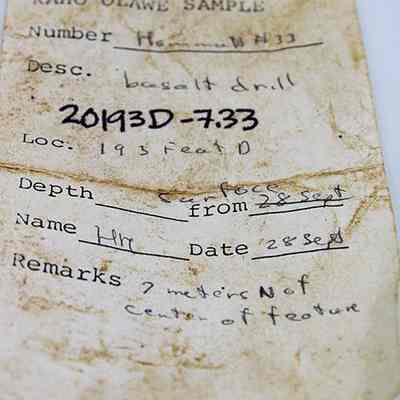 KAHO OLAWE SAMPLE
Number N 33
Desc. basalt drill
20193D-7.33
Loc. 193 Feat D
Depth surface from 28 Sept
Name HM Date 28 Sept
Remarks 7 meters N of
center of feature